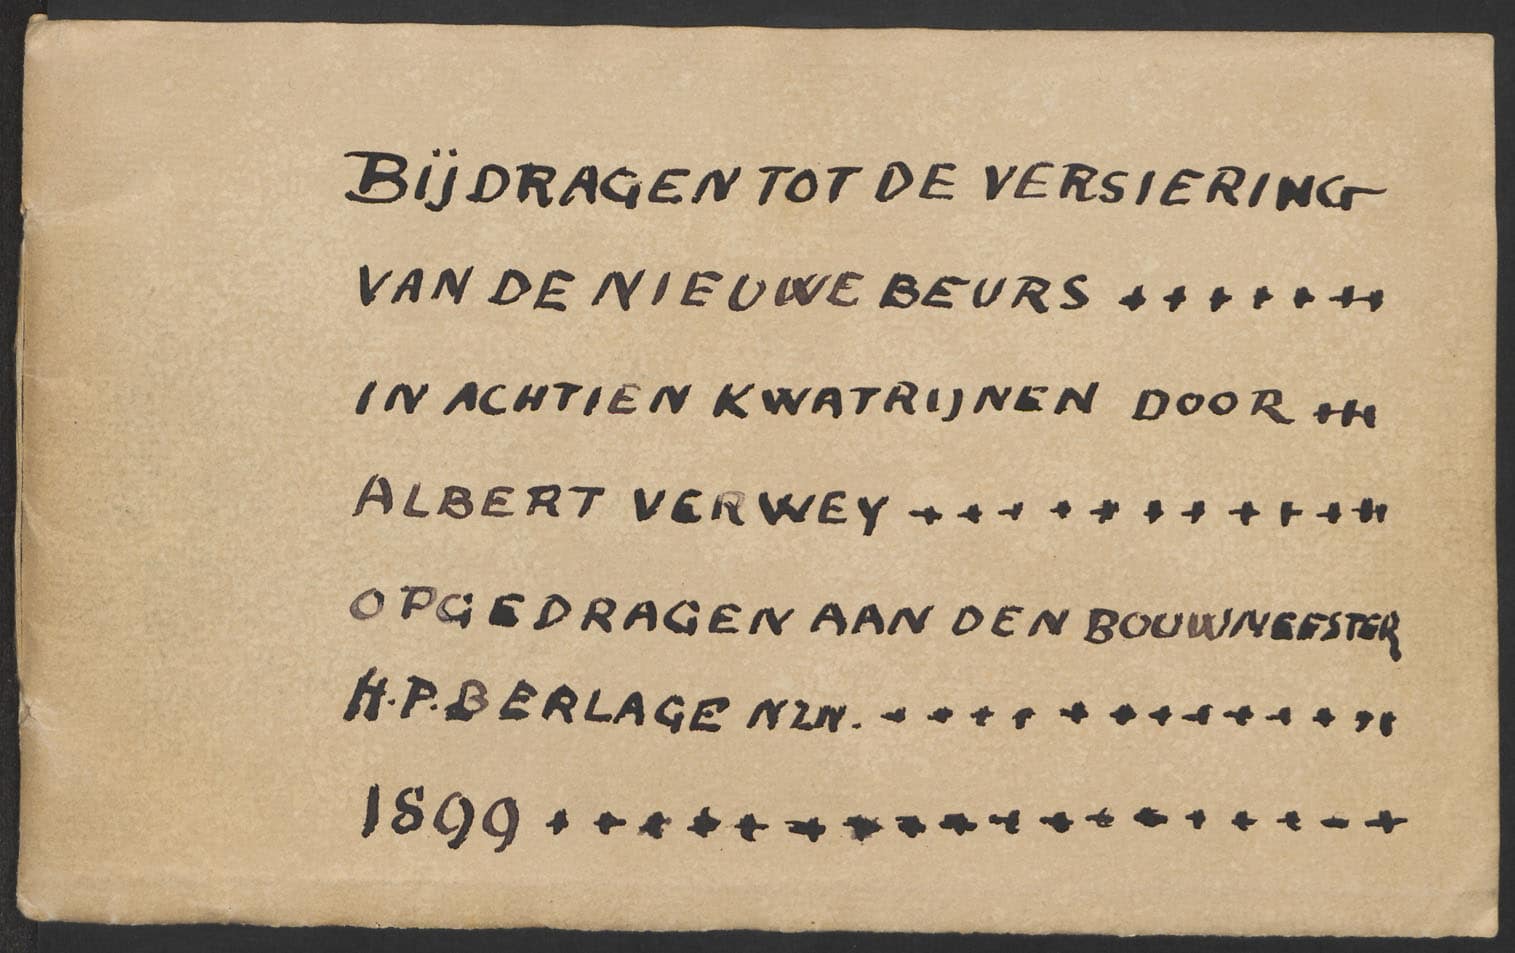 BIJDRAGEN TOT DE VERSIERING
VAN DE NIEUWE BEURS + + + + + + +
IN ACHTIEN KWATRIJNEN DOOR + + +
ALBERT VERWEY + + + + + + + + + + + +
OPGEDRAGEN AAN DEN BOUWMEESTER
H.P. BERLAGE NZN. + + + + + + + + + + + + +
1899 + + + + + + + + + + + + + + + + + +